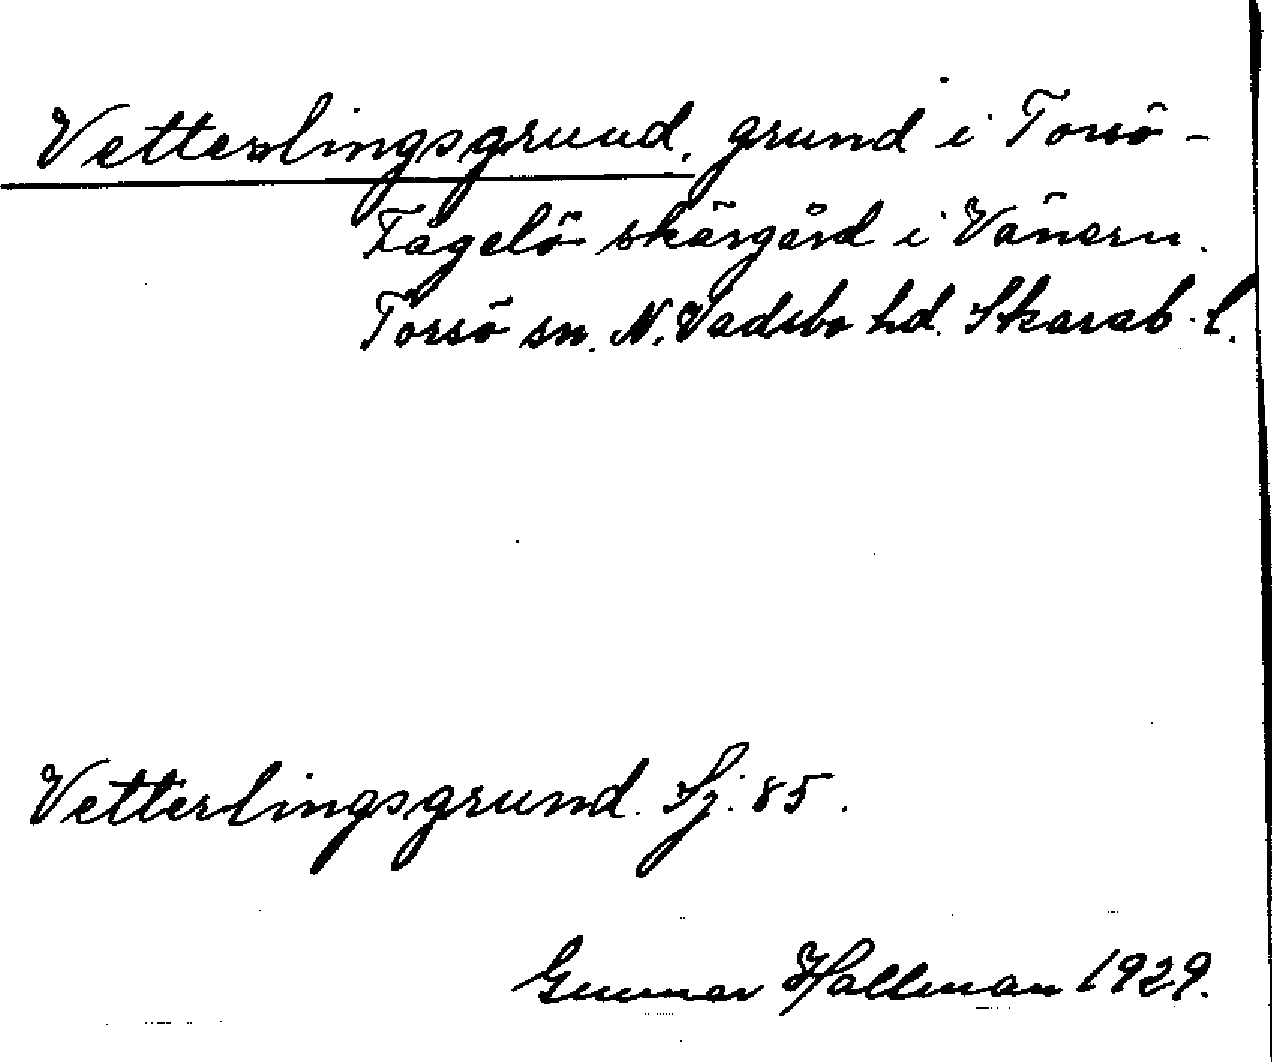 Vetterlingsgrund, grund i Torsö-
Fågelö skärgård i Vänern.
Torsö sn. N. Vadsbo hd. Skarab. l.
Vetterlingsgrund. Sj. 85.
Gunnar Hallman 1929.